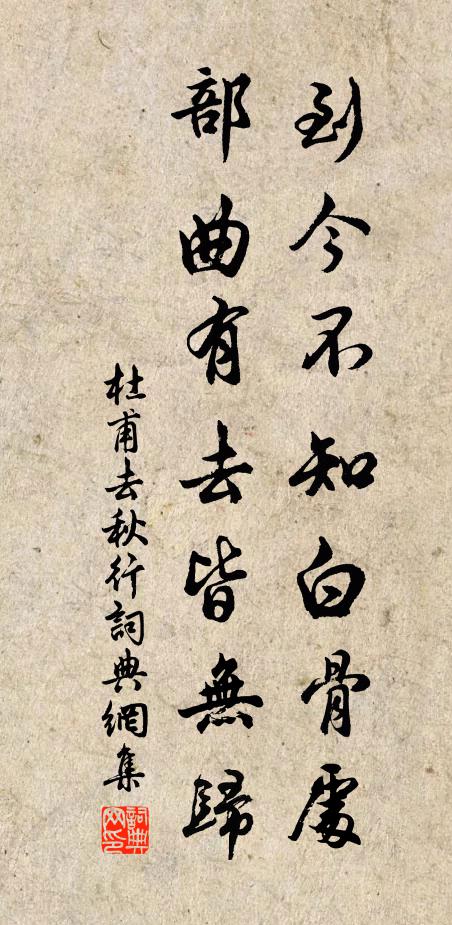 到今不知白骨處
部曲有去皆無歸
杜甫去秋行詞典網集
詞典網印